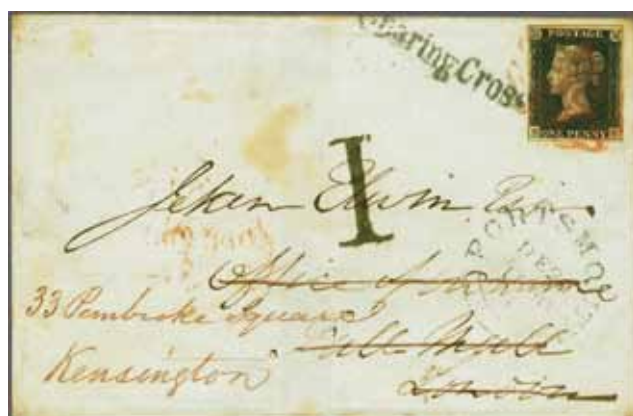 Charing Cross
POSTAGE
ONE PENNY
1
Edwin Esqr.
PORTSMO
DE
Office of
33 Pembroke Square
Pall Mall
Kensington
London